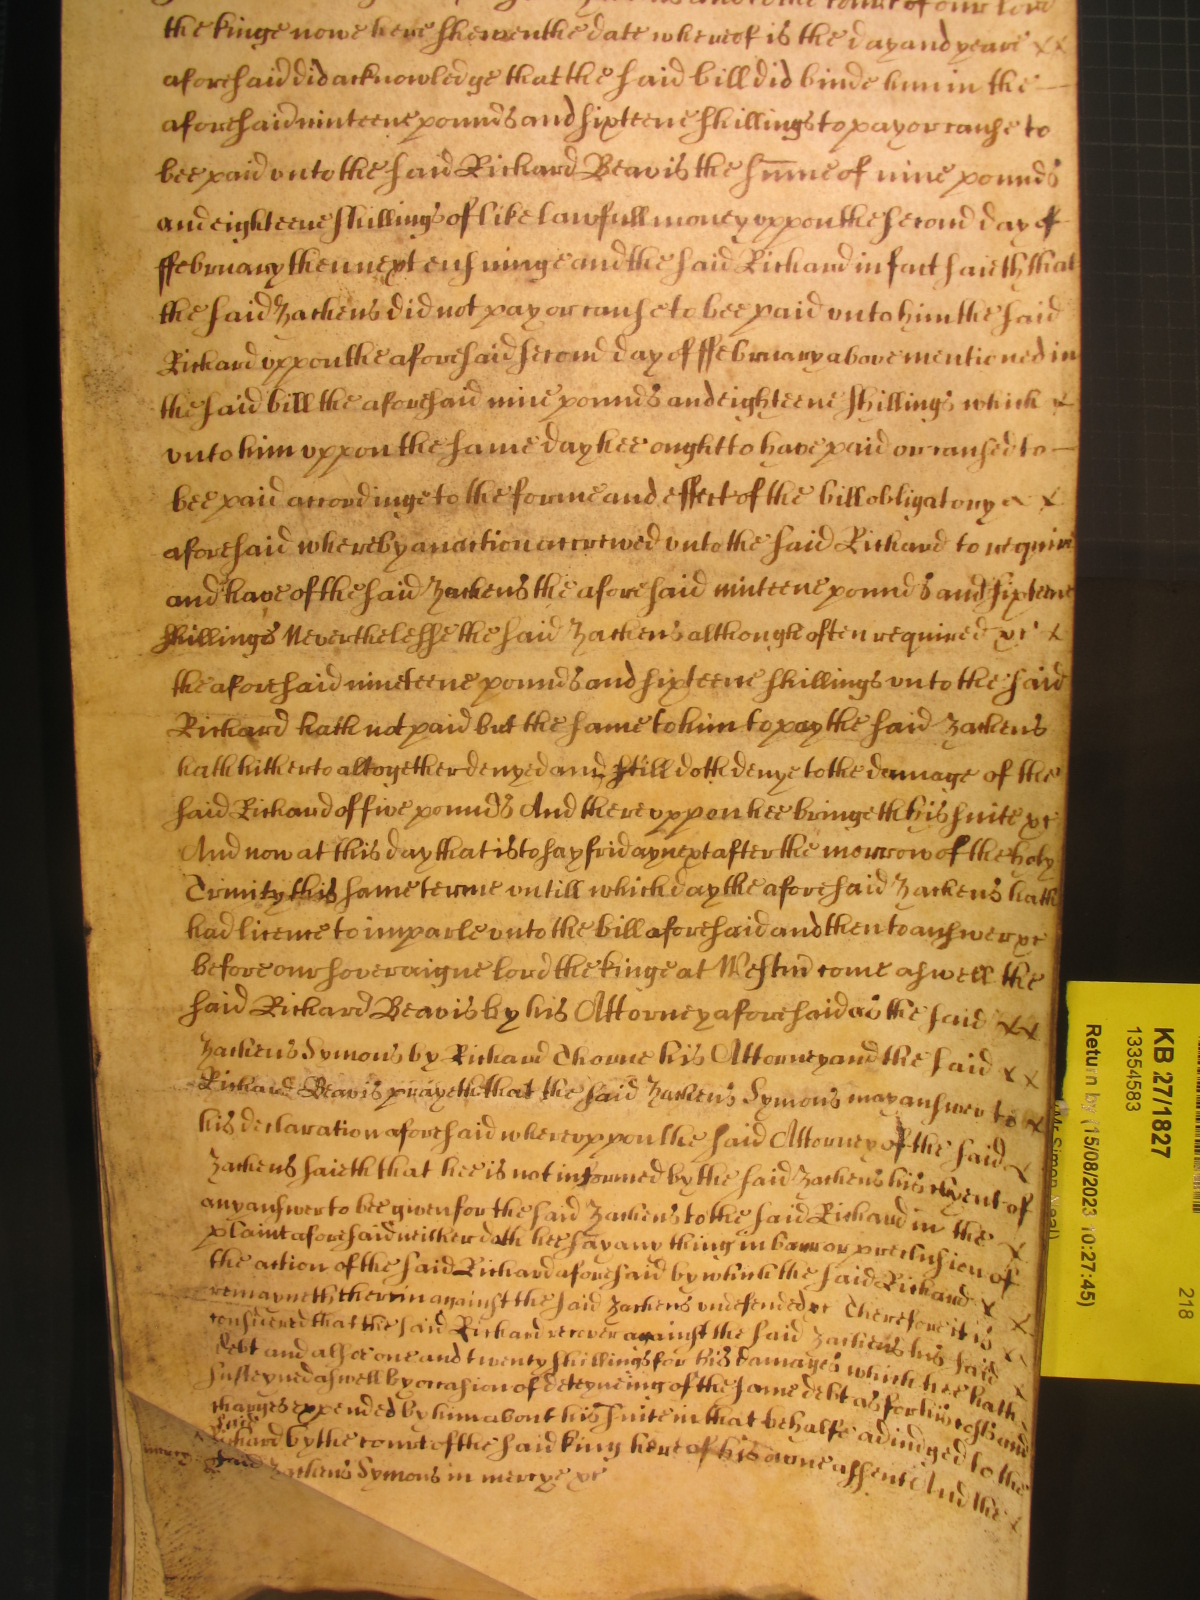 and to the court of our lord
the kinge nowe here shewen the date whereof is the day and yeare x x
aforesaid did acknowledge that the said bill did binde him in the —
aforesaid ninteene pounds and sixteene shillings to pay or cause to
bee paid unto the said Richard Beavis the sume of nine pounds
and eighteene shillings of like lawfull money uppon the second day of
ffebruary then next ensuinge and the said Richard in fact saieth that
the said Zackeus did not pay or cause to bee paid unto him the said
Richard uppon the aforesaid second day of ffebruary above mentioned in
the said bill the aforesaid nine pounds and eighteene shillings which x
unto him uppon the same day hee ought to have paid or caused to —
bee paid accordinge to the forme and effect of the bill obligatory x x
aforesaid whereby an action accrewed unto the said Richard to require
and have of the said Zackeus the aforesaid ninteene pounds and sixteene
shillings Neverthelesse the said Zackeus although often required &c x
the aforesaid nineteene pounds and sixteene shillings unto the said
Richard hath not paid but the same to him to pay the said Zackeus
hath hitherto altogether denyed and still doth denye to the damage of the
said Richard of five pounds And thereuppon hee bringeth his suite &c
And now at this day that is to say friday next after the morrow of the holy
Trinity this same terme untill which day the aforesaid Zackeus hath
had licence to imparle unto the bill aforesaid and then to answer &c
before our soveraigne lord the kinge at Westm come aswell the
said Richard Beavis by his Attorney aforesaid as the said x x
Zackeus Symons by Richard Thorne his Attorney and the said x x
Richard Beavis prayeth that the said Zackeus Symons may answer to x
his declaration aforesaid whereuppon the said Attorney of the said x
Zackeus saieth that hee is not informed by the said Zackeus his clyent of
any answer to bee given for the said Zackeus to the said Richard in the x
plaint aforesaid neither doth hee say any thing in barr or preclusion of
the action of the said Richard aforesaid by which the said Richard x x
remayneth therein against the said Zackeus undefended &c Therefore it is x
considered that the said Richard recover against the said Zackeus his said x
debt and alsoe one and twenty shillings for his damages which hee hath x
susteyned aswell by occasion of deteyneing of the same debt as for his costs and
charges expended by him about his suite in that behalfe adiudged to the
said
Richard by the court of the said king here of his owne assent And the x
mercy said Zackeus Symons in mercye &c
KB 27/1827
13354583
Return by (15/08/2023 10:27:45)
218
(Mr Simon Neal)